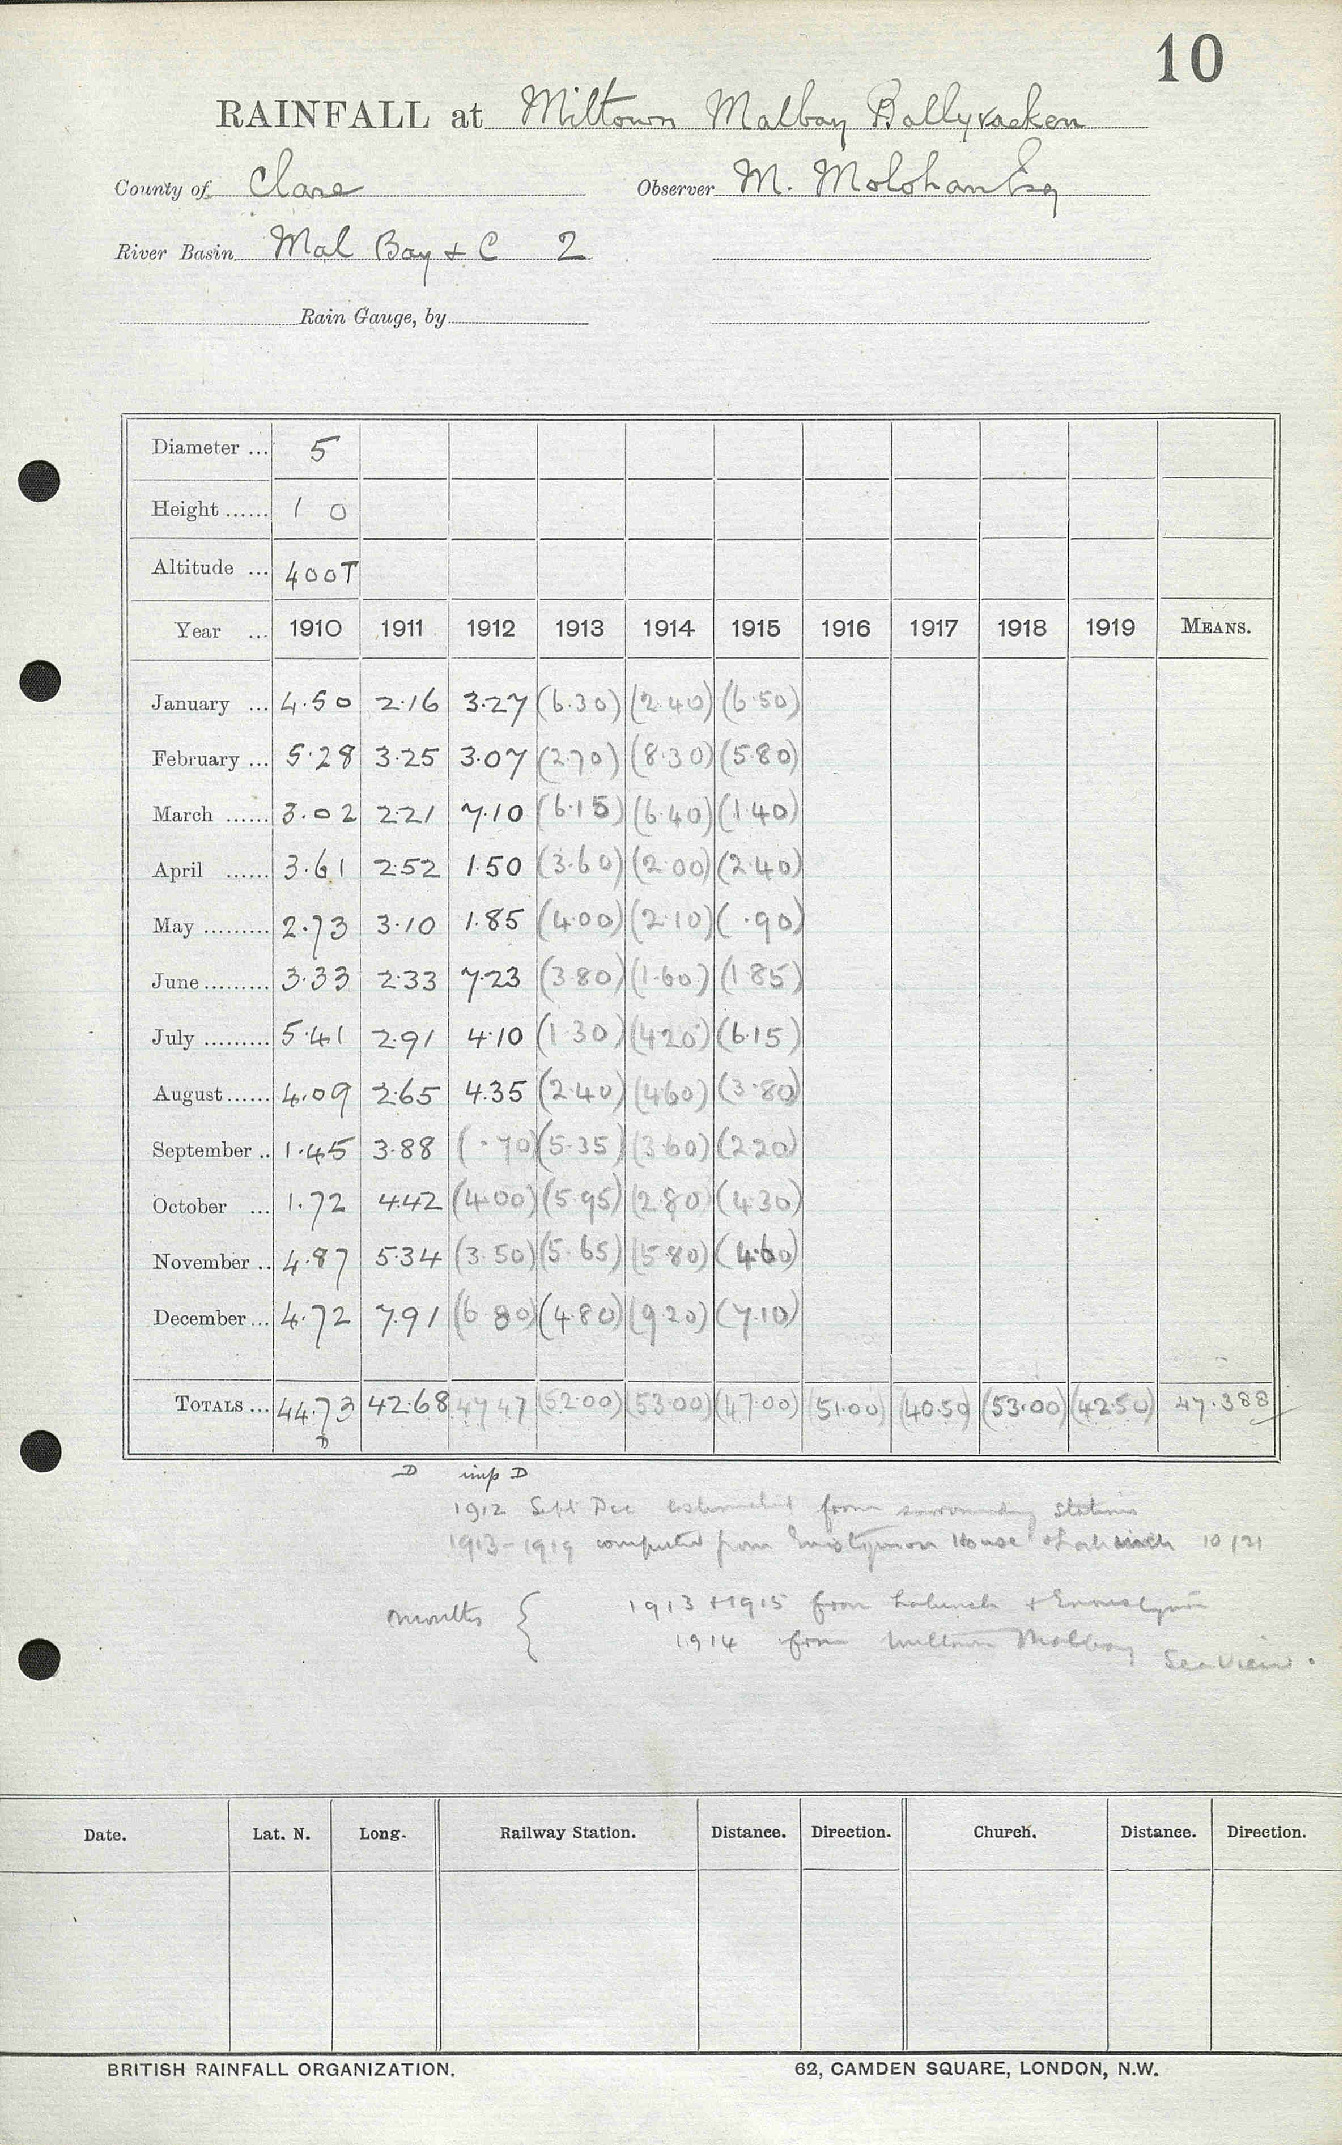 10
RAINFALL at Miltown Malbay Ballyvacken
County of Clare Observer M. Molohan Esq
River Basin Mal Bay & C 2
Rain Gauge, by
Diameter ... 5
Height ...... 1 0
Altitude ... 400T
Year ... 1910 1911 1912 1913 1914 1915 1916 1917 1918 1919 MEANS.
January ... 4.50 2.16 3.27 (6.30) (2.40) (6.50)
February ... 5.28 3.25 3.07 (2.70) (8.30) (5.80)
March ...... 3.02 2.21 7.10 (6.15) (6.40) (1.40)
April ...... 3.61 2.52 1.50 (3.60) (2.00) (2.40)
May ......... 2.73 3.10 1.85 (4.00) (2.10) (.90)
June ......... 3.33 2.33 7.23 (3.80) (1.60) (1.85)
July ......... 5.41 2.91 4.10 (1.30) (4.20) (6.15)
August ...... 4.09 2.65 4.35 (2.40) (4.60) (3.80)
September .. 1.45 3.88 (.70) (5.35) (3.60) (2.20)
October ... 1.72 4.42 (4.00) (5.95) (2.80) (4.30)
November .. 4.87 5.34 (3.50) (5.65) (5.80) (4.60)
December ... 4.72 7.91 (6.80) (4.80) (9.20) (7.10)
TOTALS ... 44.73 42.68 47.47 (52.00) (53.00) (47.00) (51.00) (40.50) (53.00) (42.50) 47.388
D D imp D
1912 Sept Dec estimated from surrounding stations
1913-1919 computed from Ennistymon House & Lahinch 10/21
months { 1913 + 1915 from Lahinch + Ennistymon
1914 from Milltown Malbay Sea View.
Date. Lat. N. Long. Railway Station. Distance. Direction. Church. Distance. Direction.
BRITISH RAINFALL ORGANIZATION. 62, CAMDEN SQUARE, LONDON, N.W.